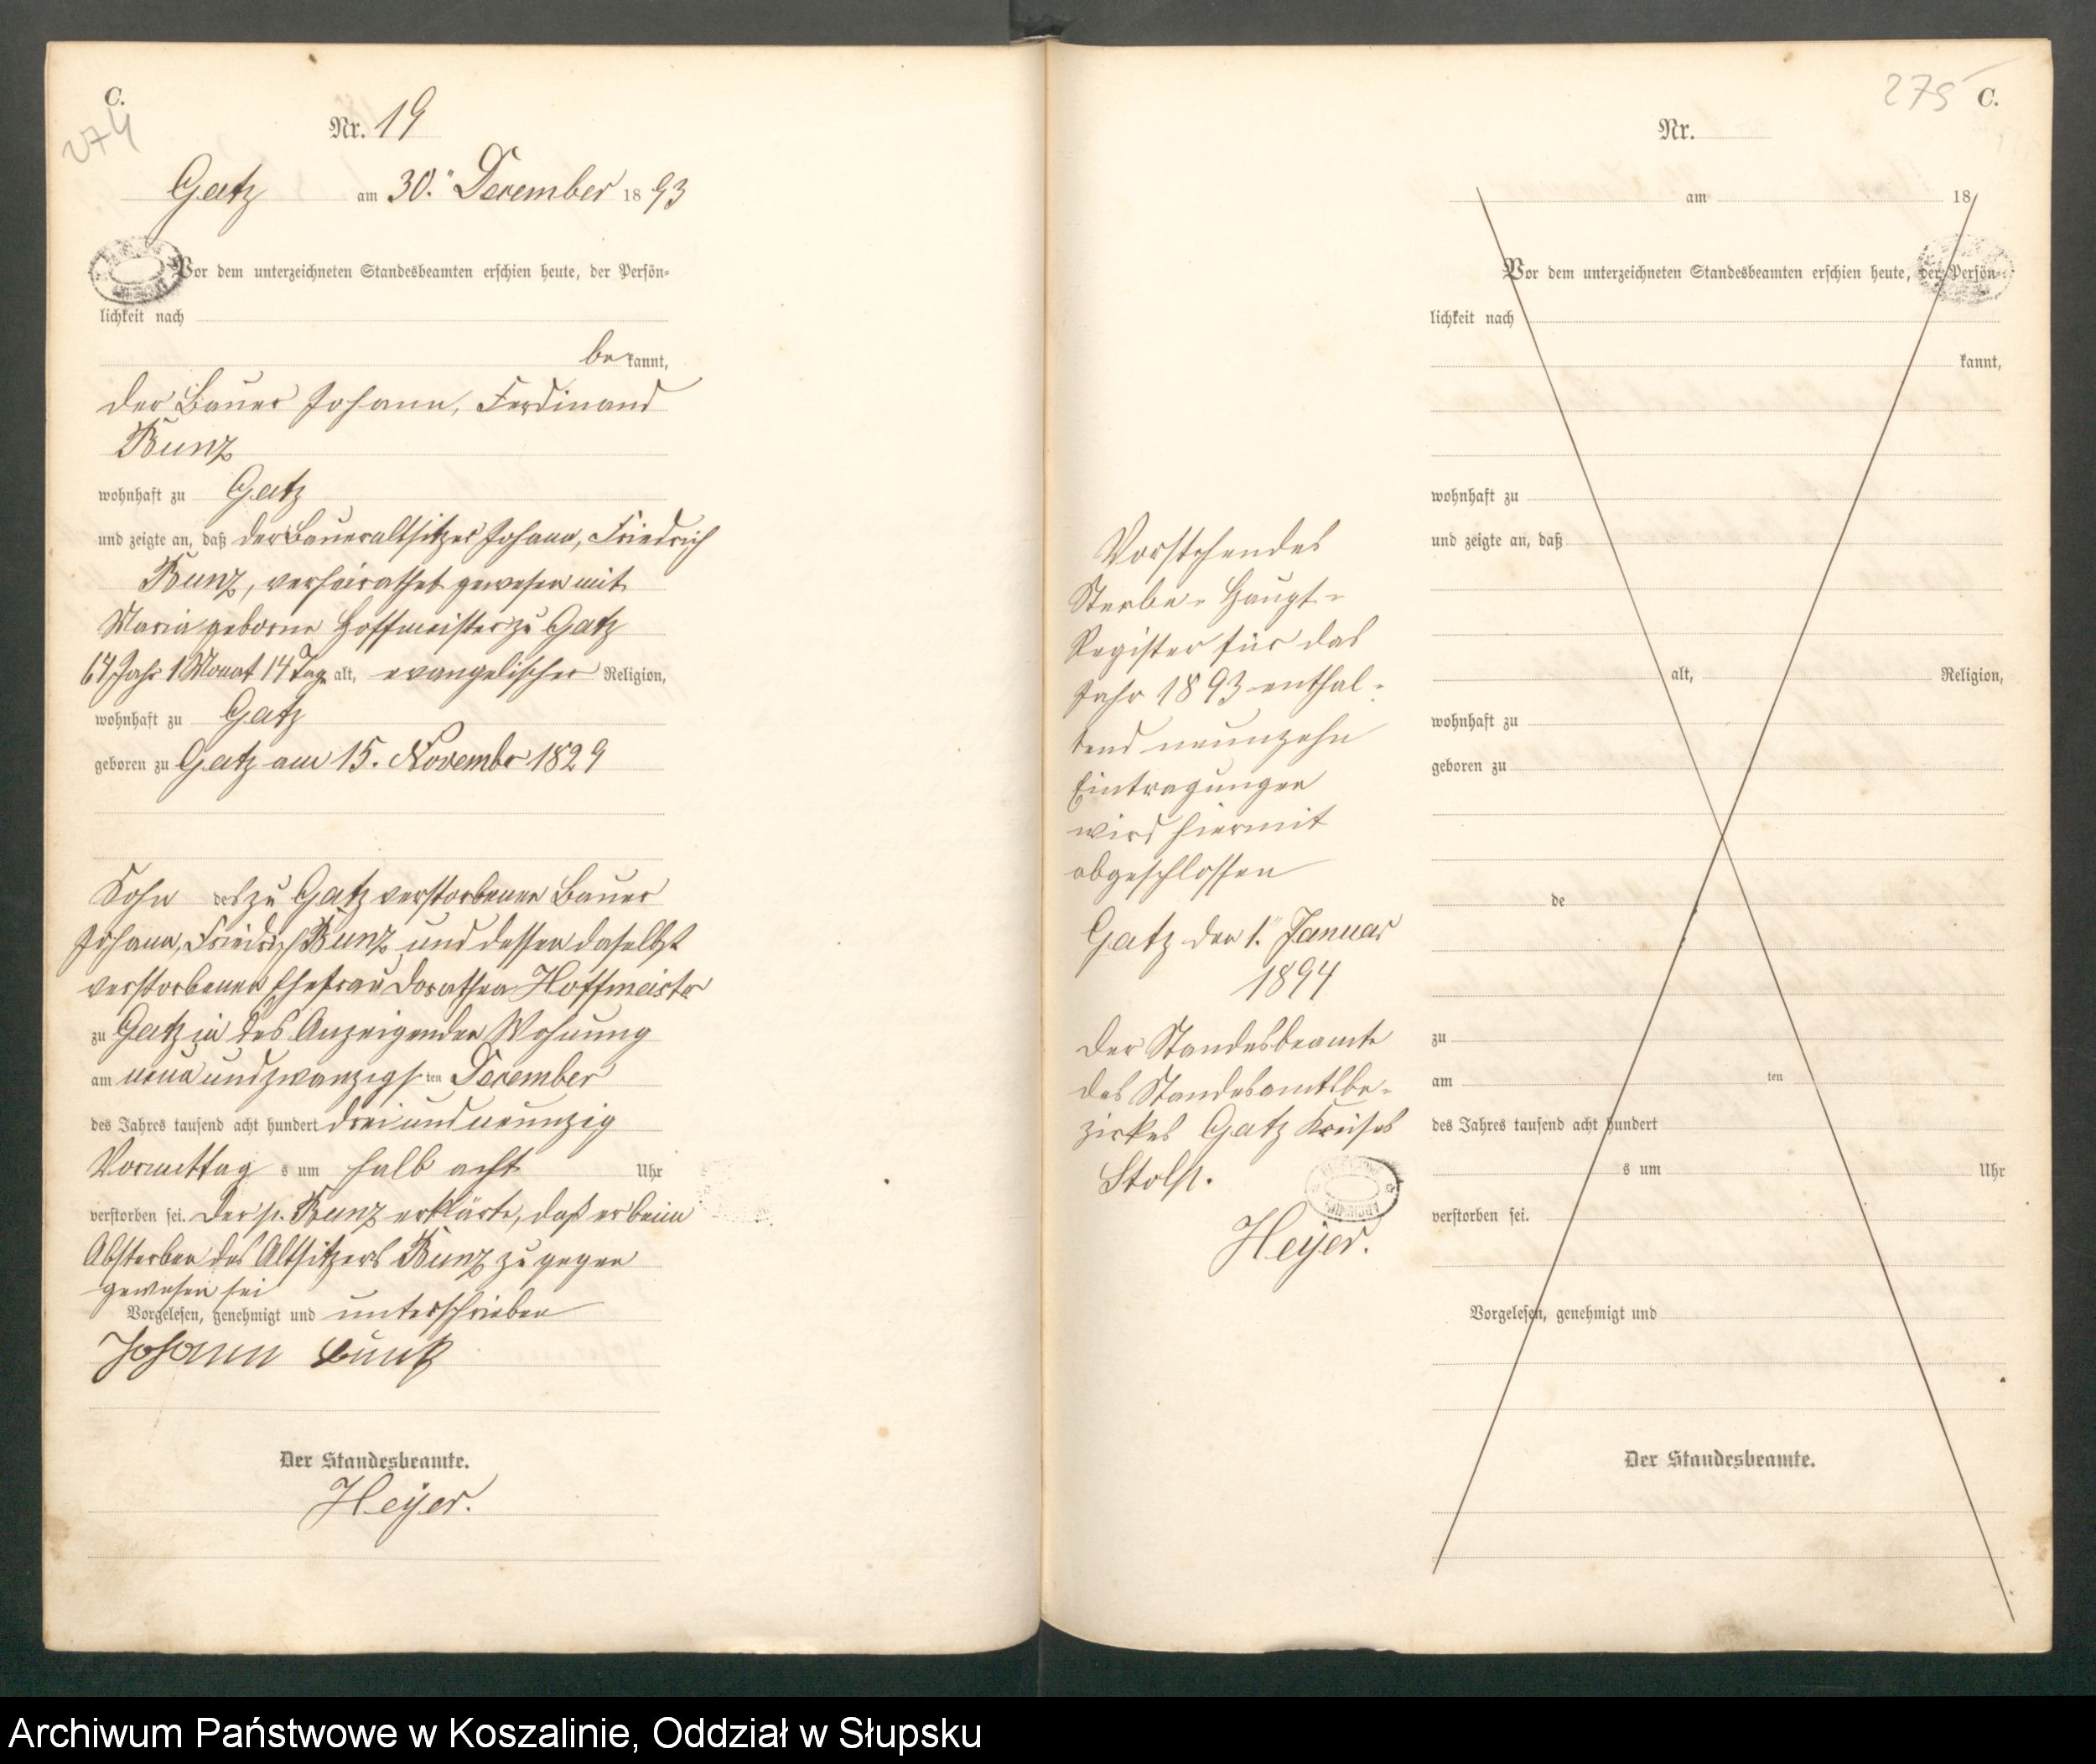 C.
274
Nr. 19
Gatz am 30.ⁿ December 1893
Vor dem unterzeichneten Standesbeamten erschien heute, der Persön-
lichkeit nach
be kannt,
der Bauer Johann, Ferdinand
Bunz
wohnhaft zu Gatz
und zeigte an, daß der Baueraltsitzer Johann, Friedrich
Bunz, verheirathet gewesen mit
Maria geborne Hoffmeister zu Gatz
64 Jahr 1 Monat 14 Tage alt, evangelischer Religion,
wohnhaft zu Gatz
geboren zu Gatz am 15. November 1829
Sohn des zu Gatz verstorbenen Bauer
Johann, Friedrich Bunz und dessen daselbst
verstorbenen Ehefrau Dorathea Hoffmeister
zu Gatz in des Anzeigenden Wohnung
am neun und zwanzigsten December
des Jahres tausend acht hundert drei und neunzig
Vormittags um halb acht Uhr
verstorben sei. Der p. Bunz erklärte, daß er beim
Absterben des Altsitzers Bunz zu gegen
gewesen sei
Vorgelesen, genehmigt und unterschrieben
Johann Bunz
Der Standesbeamte.
Heyer.
Vorstehendes
Sterbe-Haupt-
Register für das
Jahr 1893 enthal-
tend neunzehn
Eintragungen
wird hiermit
abgeschlossen
Gatz den 1.ⁿ Januar
1894
Der Standesbeamte
des Standesamtsbe-
zirkes Gatz Kreises
Stolp.
Heyer.
275 C.
Nr.
am 18
Vor dem unterzeichneten Standesbeamten erschien heute, der Persön-
lichkeit nach
kannt,
wohnhaft zu
und zeigte an, daß
alt, Religion,
wohnhaft zu
geboren zu
de
zu
am ten
des Jahres tausend acht hundert
s um Uhr
verstorben sei.
Vorgelesen, genehmigt und
Der Standesbeamte.
Archiwum Państwowe w Koszalinie, Oddział w Słupsku